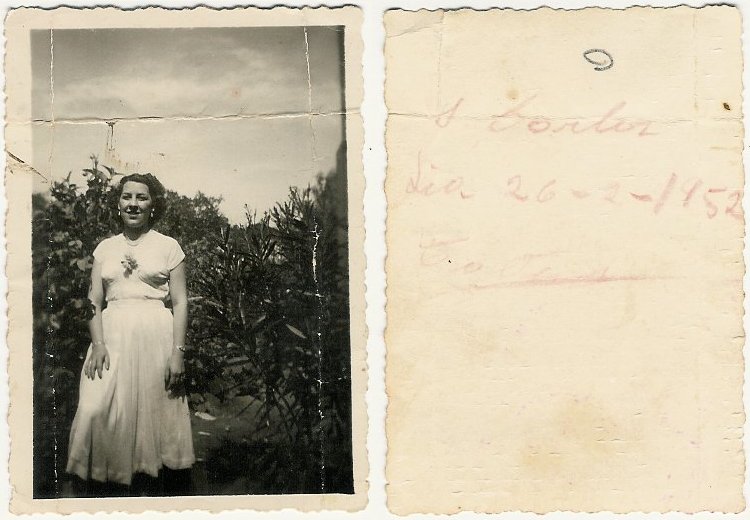 S Carlos
Dia 26-2-1952